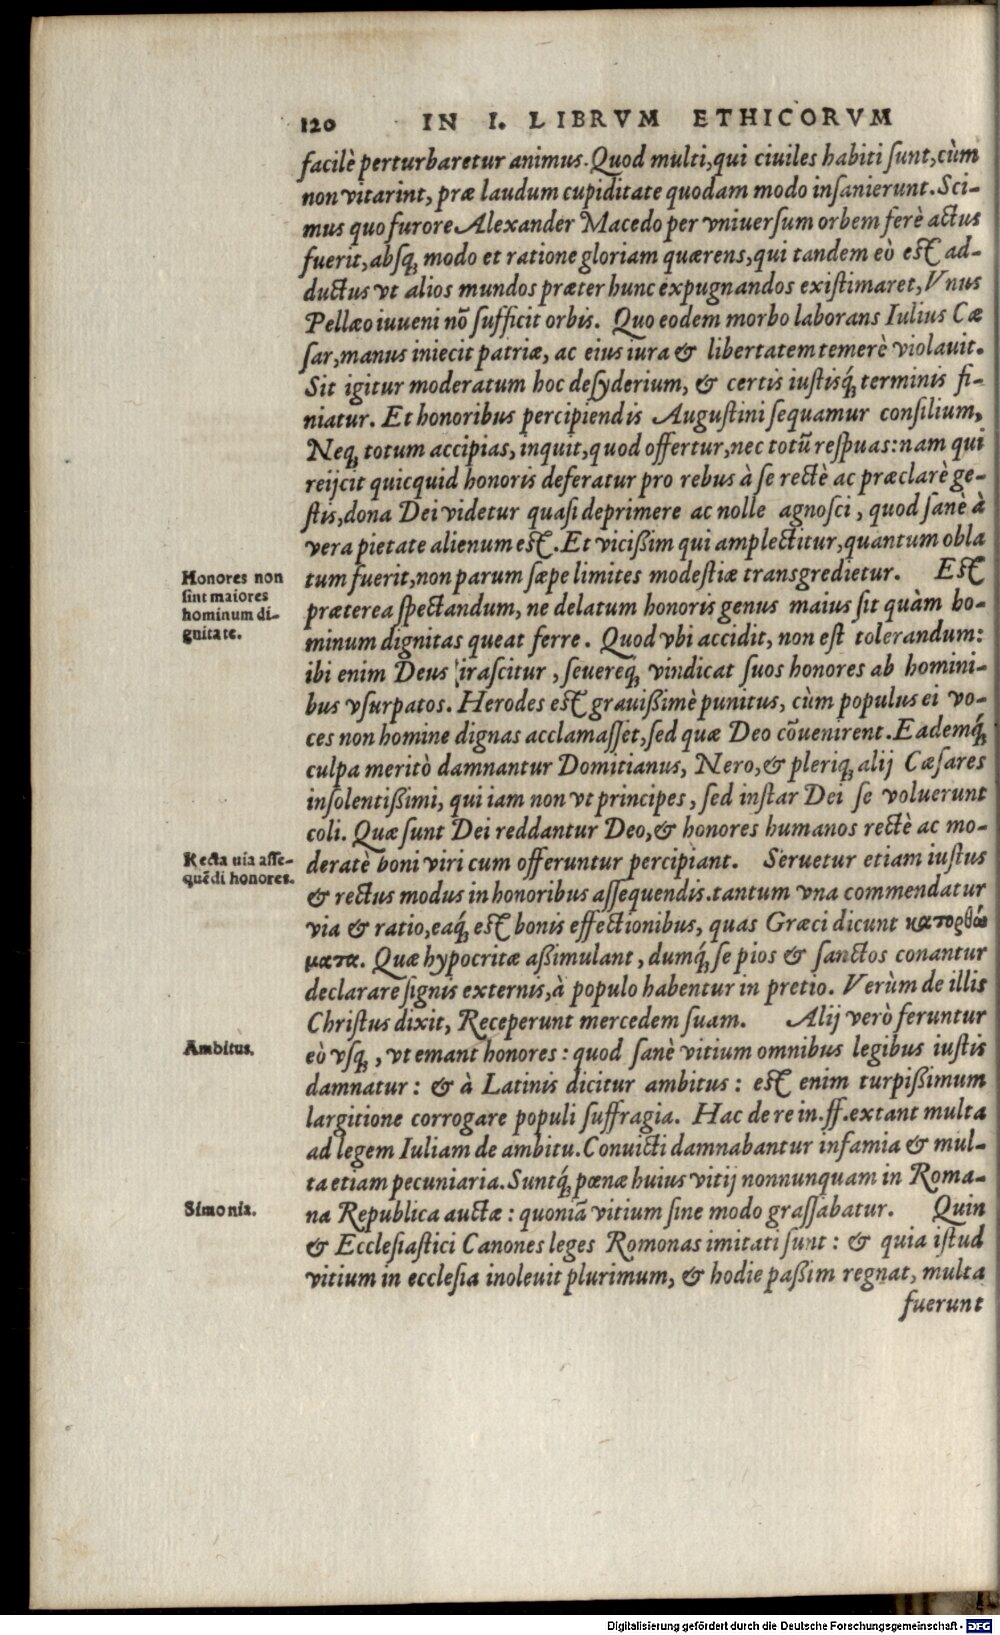 120 IN I. LIBRVM ETHICORVM
facilè perturbaretur animus. Quod multi, qui ciuiles habiti ſunt, cùm
non vitarint, præ laudum cupiditate quodam modo inſanierunt. Sci-
mus quo furore Alexander Macedo per vniuerſum orbem ferè actus
fuerit, abſq́; modo et ratione gloriam quærens, qui tandem eò est ad-
ductus vt alios mundos præter hunc expugnandos exiſtimaret, Vnus
Pellæo iuueni nõ ſufficit orbis. Quo eodem morbo laborans Iulius Cæ
ſar, manus iniecit patriæ, ac eius iura & libertatem temerè violauit.
Sit igitur moderatum hoc deſyderium, & certis iuſtisq́; terminis fi-
niatur. Et honoribus percipiendis Auguſtini ſequamur conſilium,
Neq; totum accipias, inquit, quod offertur, nec totũ reſpuas: nam qui
reijcit quicquid honoris deferatur pro rebus à ſe rectè ac præclarè ge-
ſtis, dona Dei videtur quaſi deprimere ac nolle agnoſci, quod ſanè à
vera pietate alienum est. Et vicißim qui amplectitur, quantum obla
Honores non
ſint maiores
hominum di-
gnitate.
tum fuerit, non parum ſæpe limites modeſtiæ transgredietur. Est
præterea ſpectandum, ne delatum honoris genus maius ſit quàm ho-
minum dignitas queat ferre. Quod vbi accidit, non eſt tolerandum:
ibi enim Deus iraſcitur, ſeuereq́; vindicat ſuos honores ab homini-
bus vſurpatos. Herodes est grauißimè punitus, cùm populus ei vo-
ces non homine dignas acclamaſſet, ſed quæ Deo cõuenirent. Eademq́;
culpa meritò damnantur Domitianus, Nero, & pleriq; alij Cæſares
inſolentißimi, qui iam non vt principes, ſed inſtar Dei ſe voluerunt
coli. Quæ ſunt Dei reddantur Deo, & honores humanos rectè ac mo-
Recta uia aſſe-
quẽdi honores.
deratè boni viri cum offeruntur percipiant. Seruetur etiam iuſtus
& rectus modus in honoribus aſſequendis. tantum vna commendatur
via & ratio, eaq́; est bonis effectionibus, quas Græci dicunt κατορθώ
ματα. Quæ hypocritæ aßimulant, dumq́; ſe pios & ſanctos conantur
declarare ſignis externis, à populo habentur in pretio. Verùm de illis
Chriſtus dixit, Receperunt mercedem ſuam. Alij verò feruntur
Ambitus.
eò vſq;, vt emant honores: quod ſanè vitium omnibus legibus iuſtis
damnatur: & à Latinis dicitur ambitus: est enim turpißimum
largitione corrogare populi ſuffragia. Hac de re in. ff. extant multa
ad legem Iuliam de ambitu. Conuicti damnabantur infamia & mul-
ta etiam pecuniaria. Suntq́; pœnæ huius vitij nonnunquam in Roma-
Simonia.
na Republica auctæ: quoniã vitium ſine modo graſſabatur. Quin
& Eccleſiaſtici Canones leges Romonas imitati ſunt: & quia iſtud
vitium in eccleſia inoleuit plurimum, & hodie paßim regnat, multa
fuerunt
Digitalisierung gefördert durch die Deutsche Forschungsgemeinschaft - DFG